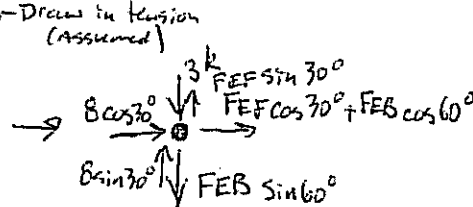 -Draw in tension
(Assumed)
3k
FEF sin 30°
8 cos 30°
FEF cos 30° + FEB cos 60°
8 sin 30°
FEB sin 60°